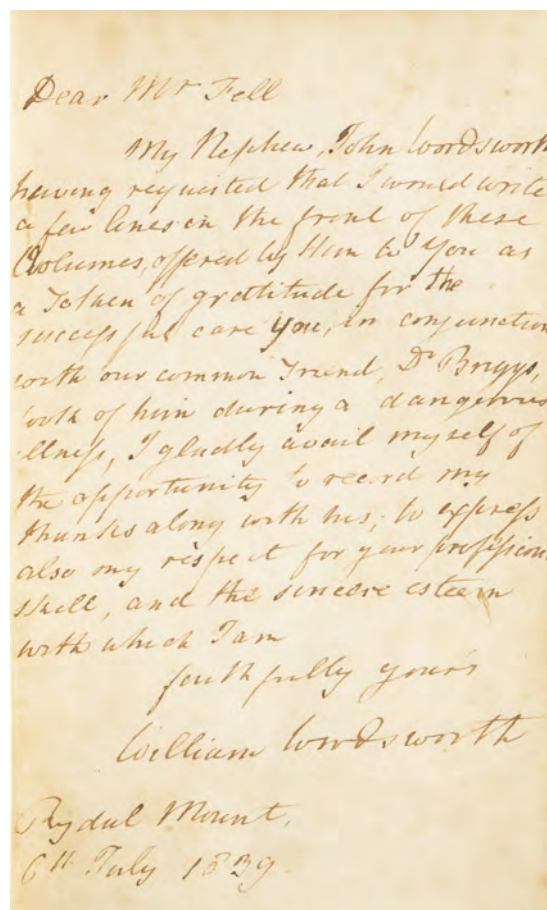 Dear Mr Fell
My Nephew, John Wordsworth
having requested that I would write
a few lines in the front of these
Volumes, offered by Him to You as
a Token of gratitude for the
successful care you, in conjunction
with our common Friend, Dr Briggs,
took of him during a dangerous
illness, I gladly avail myself of
the opportunity to record my
thanks along with his; to express
also my respect for your professional
skill, and the sincere esteem
with which I am
faithfully yours
William Wordsworth
Rydal Mount,
6th July 1839.